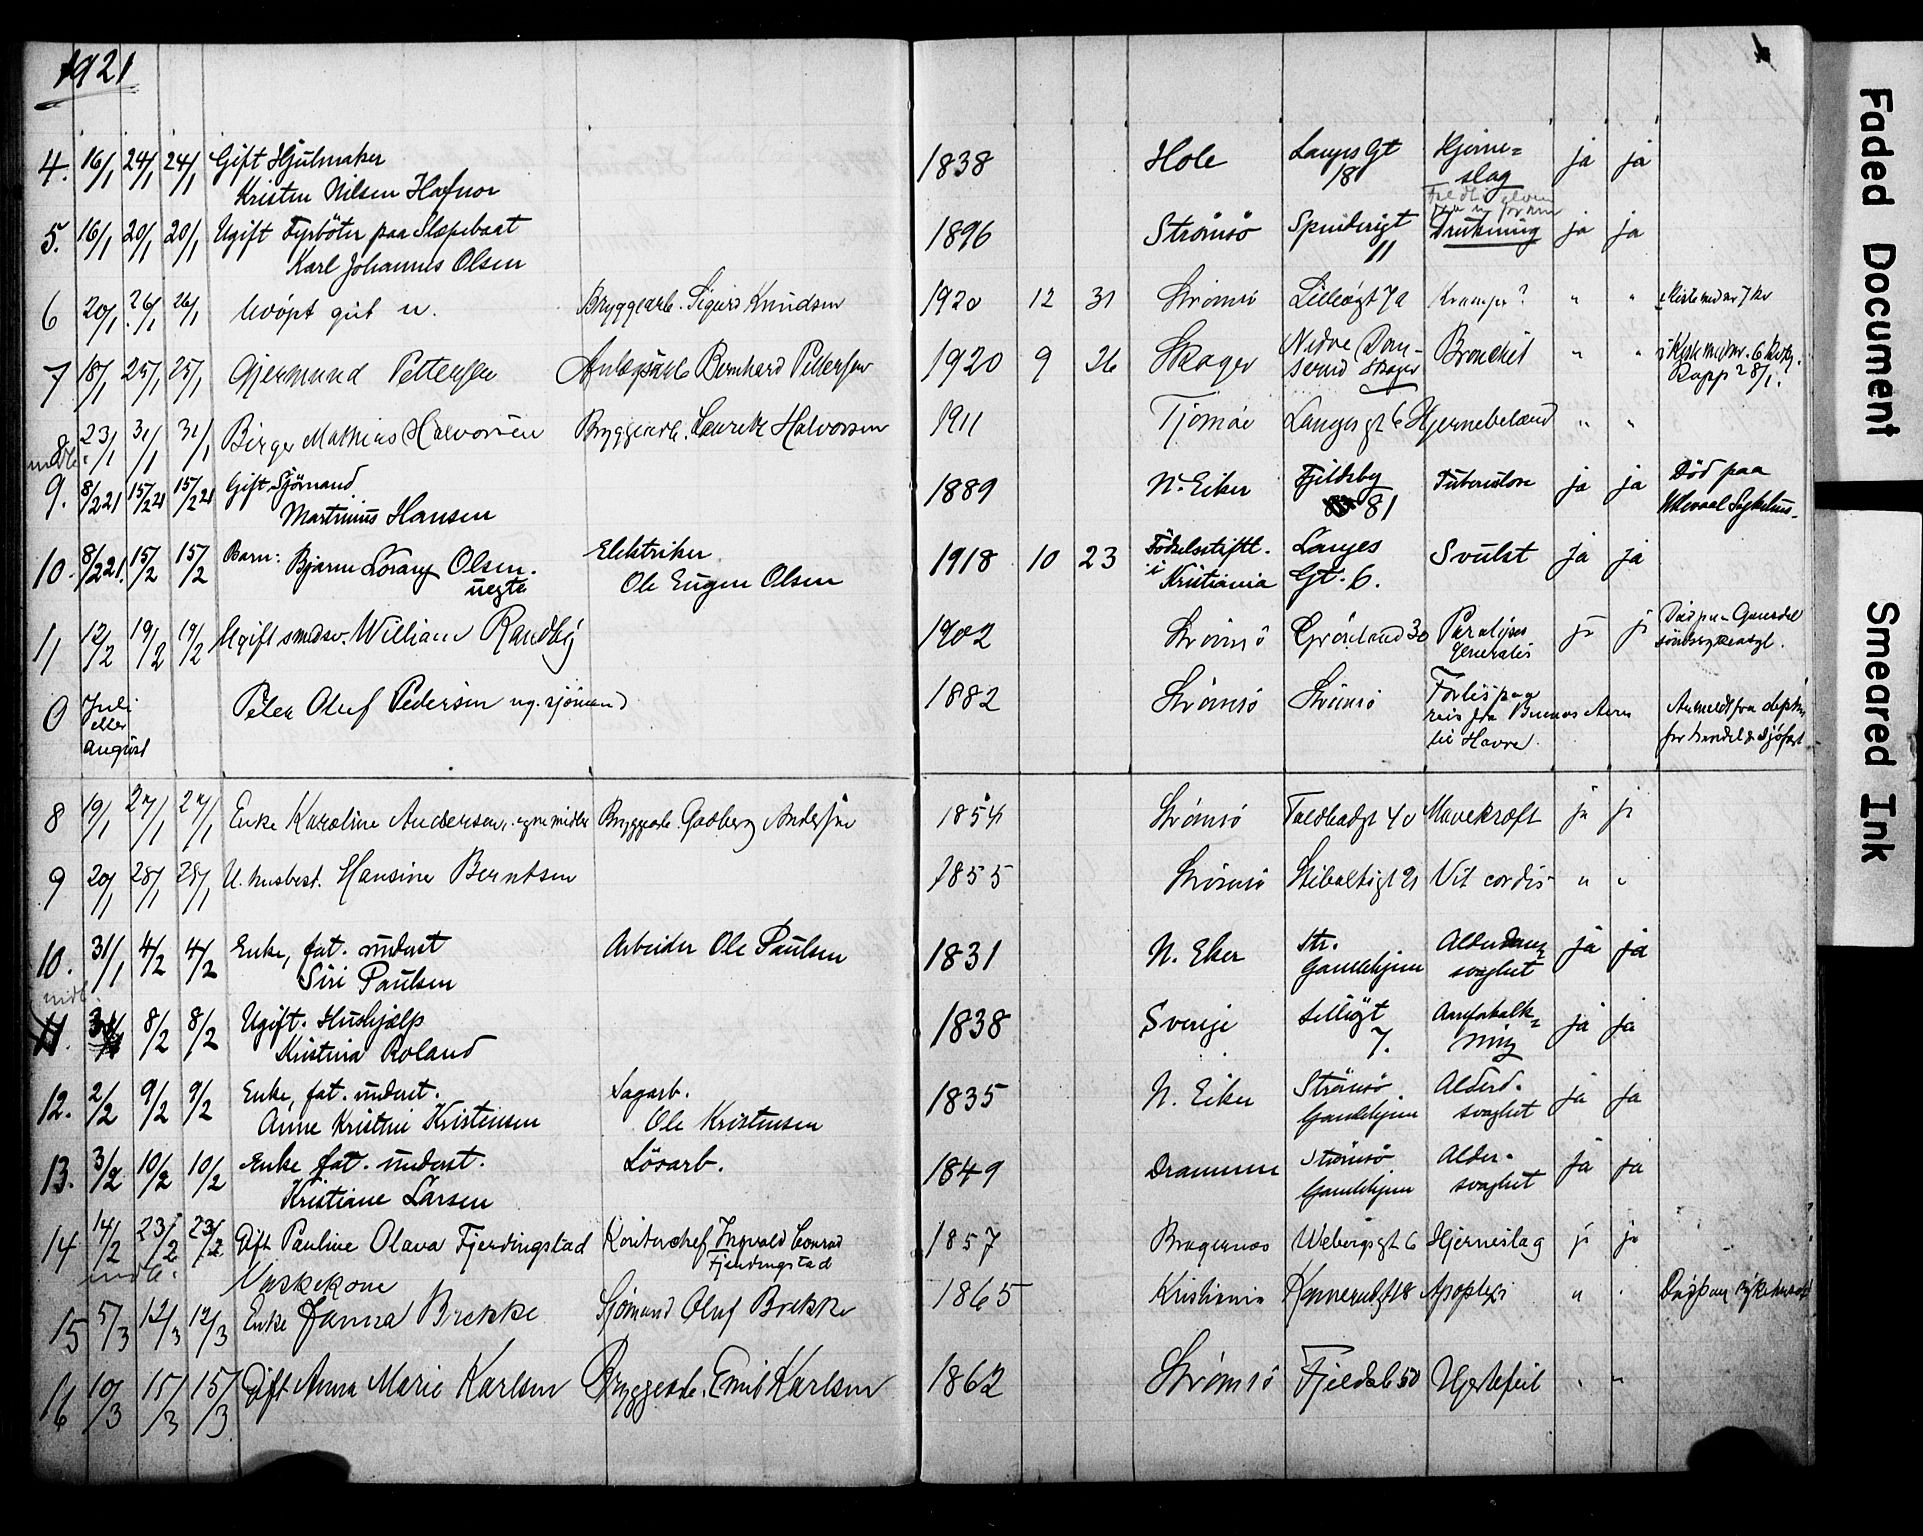 1921
4. 16/1 24/1 24/1 Gift Hjulmaker 1838 Hole Langes Gt Hjerne= ja ja
Kristen Nilsen Hafnor 18 slag
5. 16/1 20/1 20/1 Ugift Fyrböter paa Slæpebaat 1896 Strömsö Spinderigt Drukning ja ja
Karl Johannes Olsen 11
6 20/1 26/1 26/1 Udøpt gut u. Bryggearb. Sigurd Knudsen 1920 12 31 Strömsö Lilleøgt 7a Krampe? " "
7 18/1 25/1 25/1 Gjermund Pettersen Anlægsarb Bernhard Pettersen 1920 9 26 Skoger Nedre Dan- Bronchit " "
serud Skoger
8 23/1 31/1 31/1 Birger Mathias Halvorsen Bryggearb. Lauritz Halvorsen 1911 Tjømøe Langesgt 6 Hjernebetænd " "
indb.
9. 8/2 21 15/2 21 15/2 21 Gift Sjömand 1889 N. Eiker Fjeldsby Tuberculose ja ja Död paa
Martinius Hansen 81 Ullevaal Sykehus
10. 8/2 21. 15/2 15/2 Barn: Bjarne Lorang Olsen. Elektriker 1918 10 23 Födselsstiftt. Langes Svulst ja ja
uegte Ole Eugen Olsen i Kristiania Gt. 6.
11 12/2 19/2 19/2 Ugift smedsv. William Randby 1902 Strømsö Grønland 30 Paralyses ja ja Död paa Gausdel
generalis sindssykeasyl.
0 Juli Peter Oluf Pedersen ug. sjömand 1882 Strömsö Strömsö Forlis paa Anmeldt fra depten
eller reis fra Buenos Aires for handel & sjöfart
august til Havre.
8 19/1 27/1 27/1 Enke Karoline Andersen, egne midler Bryggearb. Gudberg Andersen 1854 Strömsö Toldbodgt 40 Mavekræft ja ja
9 20/1 28/1 28/1 U. husbest. Hansine Berntsen 1855 Strömsö Stibolttsgt 21 Vit cordis " "
10. 31/1 4/2 4/2 Enke, fat. underst Arbeider Ole Paulsen 1831 N. Eker Str. Alderdoms ja ja
Siri Paulsen Gamlehjem svaghet
indb.
11. 8/2 8/2 Ugift. Hushjælp 1838 Sverige Lilleøgt Areforkalk= ja ja
Kristina Roland 7. ning
12. 2/2 9/2 9/2 Enke, fat. underst. Sagarb. 1835 N. Eiker Strömsö Alderd. ja ja
Anne Kristine Kristensen Ole Kristensen Gamlehjem svaghet
13. 3/2 10/2 10/2 Enke fat. underst. Lösarb. 1849 Drammen Strömsö Alder- ja ja
Kristiane Larsen Gamlehjem svaghet
14 14/2 23/2 23/2 Gift Pauline Olava Fjerdingstad Kontorchef Ingvald Conrad 1857 Bragernæs Webergsgt 6 Hjerneslag ja ja
indb. Fjerdingstad
Vaskekone
15 5/3 12/3 12/3 Enke Janna Brekke Sjömand Oluf Brekke 1865 Kristiania Konnerudgt 18 Apoplexi " " Död paa sykehuset
16 10/3 15/3 15/3 Gift Anna Marie Karlsen Bryggearb. Emil Karlsen 1862 Strømsö Fjeldsb 50 Hjertefeil " "
Faded Document
Smeared Ink